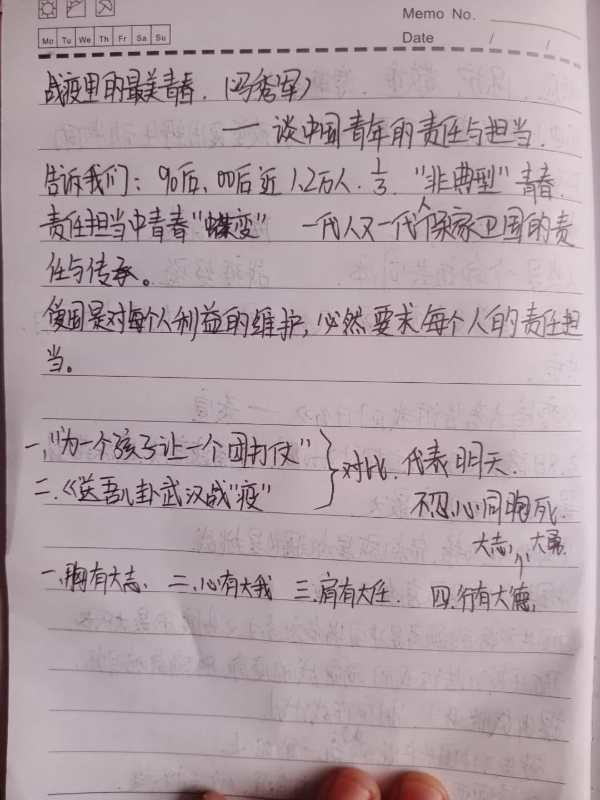 Memo No.
Mo Tu We Th Fr Sa Su
Date / /
战疫里的最美青春.(冯秀军)
— 谈中国青年的责任与担当.
告诉我们: 90后、00后近1.2万人. 1/3. "非典型"青春.
责任担当中青春"蝶变" 一代人又一代人保家卫国的责
任与传承。
爱国是对每个人利益的维护,必然要求每个人的责任担
当。
一、"为一个孩子让一个团打仗" 对比. 代表明天.
二.《送吾儿赴武汉战"疫" 不忍心同胞死.
大志, 大勇.
一.胸有大志. 二.心有大我 三.肩有大任. 四.行有大德,